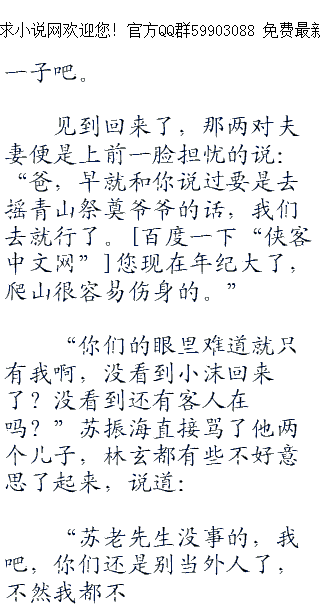 求小说网欢迎您！官方QQ群59903088 免费最新
一子吧。
见到回来了，那两对夫
妻便是上前一脸担忧的说：
“爸，早就和你说过要是去
摇青山祭奠爷爷的话，我们
去就行了。[百度一下“侠客
中文网”]您现在年纪大了，
爬山很容易伤身的。”
“你们的眼里难道就只
有我啊，没看到小沫回来
了？没看到还有客人在
吗？”苏振海直接骂了他两
个儿子，林玄都有些不好意
思了起来，说道：
“苏老先生没事的，我
吧，你们还是别当外人了，
不然我都不